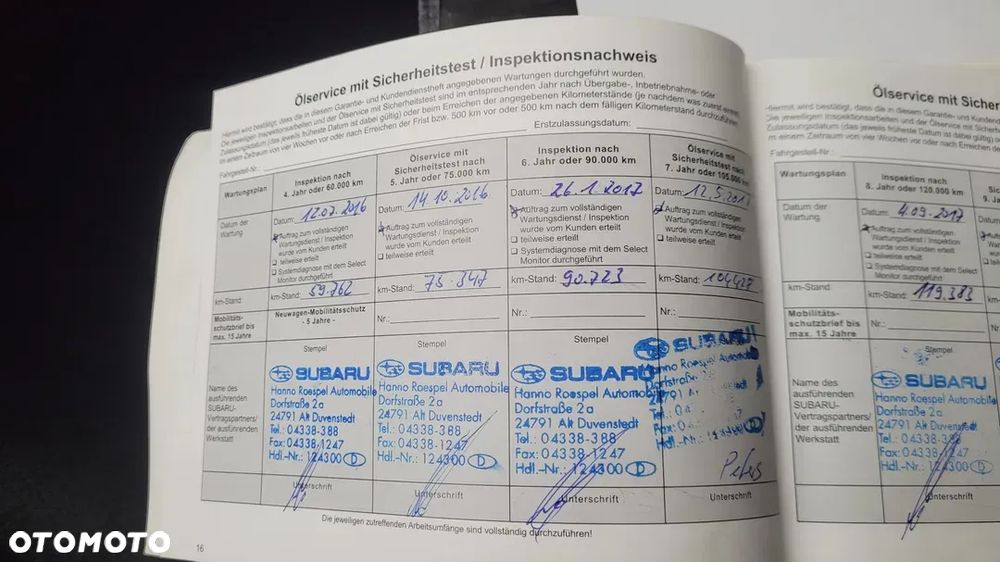 Ölservice mit Sicherheitstest / Inspektionsnachweis
Hiermit wird bestätigt, dass die in diesem Garantie- und Kundendienstheft angegebenen Wartungen durchgeführt wurden.
Die jeweiligen Inspektionsarbeiten und der Ölservice mit Sicherheitstest sind im entsprechenden Jahr nach Übergabe-, Inbetriebnahme- oder
Zulassungsdatum (das jeweils früheste Datum ist dabei gültig) oder beim Erreichen der angegebenen Kilometerstände (je nachdem was zuerst eintritt)
in einem Zeitraum von vier Wochen vor oder nach Erreichen der Frist bzw. 500 km vor oder 500 km nach dem fälligen Kilometerstand durchzuführen!
Fahrgestell-Nr.:
Erstzulassungsdatum:
Wartungsplan
Inspektion nach
4. Jahr oder 60.000 km
Ölservice mit
Sicherheitstest nach
5. Jahr oder 75.000 km
Inspektion nach
6. Jahr oder 90.000 km
Ölservice mit
Sicherheitstest nach
7. Jahr oder 105.000 km
Datum der
Wartung
Datum: 12.07.2016
Auftrag zum vollständigen
Wartungsdienst / Inspektion
wurde vom Kunden erteilt
teilweise erteilt
Systemdiagnose mit dem Select
Monitor durchgeführt
Datum: 14.10.2016
Auftrag zum vollständigen
Wartungsdienst / Inspektion
wurde vom Kunden erteilt
teilweise erteilt
Datum: 26.1.2017
Auftrag zum vollständigen
Wartungsdienst / Inspektion
wurde vom Kunden erteilt
teilweise erteilt
Systemdiagnose mit dem Select
Monitor durchgeführt
Datum: 12.5.201
Auftrag zum vollständigen
Wartungsdienst / Inspektion
wurde vom Kunden erteilt
teilweise erteilt
km-Stand
km-Stand: 59.762
km-Stand: 75.347
km-Stand: 90.723
km-Stand: 104427
Mobilitäts-
schutzbrief bis
max. 15 Jahre
Neuwagen-Mobilitätsschutz
- 5 Jahre -
Nr.:
Nr.:
Nr.:
Name des
ausführenden
SUBARU-
Vertragspartners/
der ausführenden
Werkstatt
Stempel
SUBARU
Hanno Roespel Automobile
Dorfstraße 2a
24791 Alt Duvenstedt
Tel.: 04338-388
Fax: 04338-1247
Hdl.-Nr.: 124300 D
Unterschrift
Stempel
SUBARU
Hanno Roespel Automobile
Dorfstraße 2a
24791 Alt Duvenstedt
Tel.: 04338-388
Fax: 04338-1247
Hdl.-Nr.: 124300 D
Unterschrift
Stempel
SUBARU
Hanno Roespel Automobile
Dorfstraße 2a
24791 Alt Duvenstedt
Tel.: 04338-388
Fax: 04338-1247
Hdl.-Nr.: 124300 D
Unterschrift
SUBARU
Hanno Roespel Automobile
Dorfstraße
Peters
Unterschrift
Die jeweiligen zutreffenden Arbeitsumfänge sind vollständig durchzuführen!
16
Ölservice mit Sicher
Hiermit wird bestätigt, dass die in diesem Garantie- und Kunden
Die jeweiligen Inspektionsarbeiten und der Ölservice mit Sicherh
Zulassungsdatum (das jeweils früheste Datum ist dabei gültig) o
in einem Zeitraum von vier Wochen vor oder nach Erreichen der F
Fahrgestell-Nr.:
Wartungsplan
Inspektion nach
8. Jahr oder 120.000 km
Datum der
Wartung
Datum: 4.09.2017
Auftrag zum vollständigen
Wartungsdienst / Inspektion
wurde vom Kunden erteilt
teilweise erteilt
Systemdiagnose mit dem Select
Monitor durchgeführt
km-Stand
km-Stand: 119.383
Mobilitäts-
schutzbrief bis
max. 15 Jahre
Nr.:
Name des
ausführenden
SUBARU-
Vertragspartners/
der ausführenden
Werkstatt
SUBARU
Hanno Roespel Automobile
Dorfstraße 2a
24791 Alt Duvenstedt
Tel.: 04338-388
Fax: 04338-1247
Hdl.-Nr.: 124300 D
Unterschrift
OTOMOTO